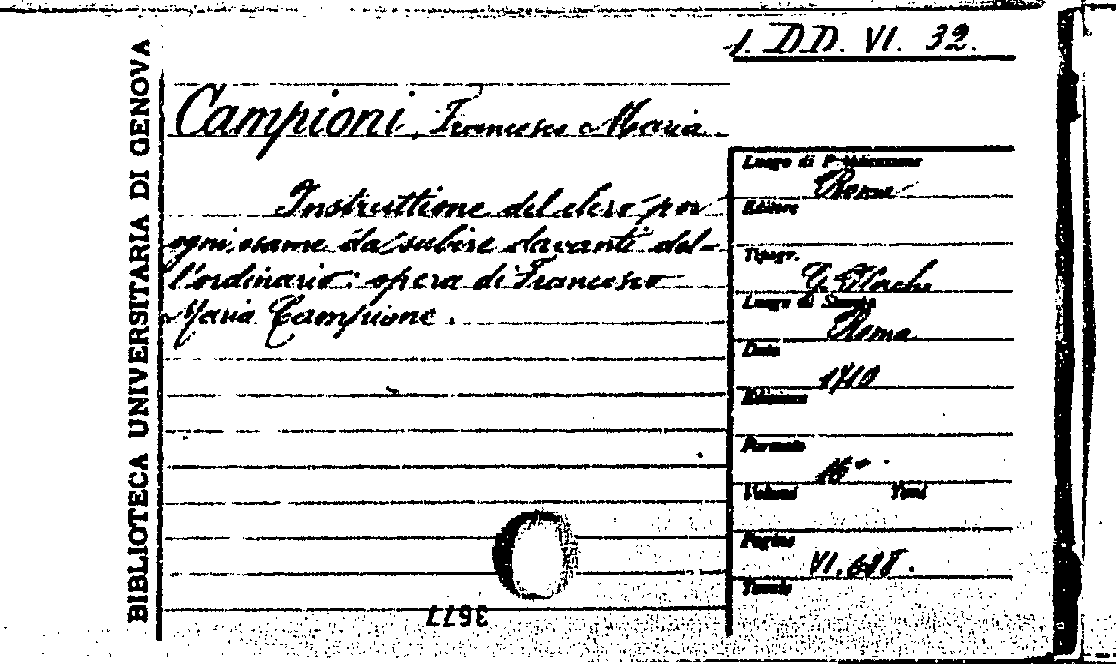 1. DD. VI. 32.
BIBLIOTECA UNIVERSITARIA DI GENOVA
Campioni, Francesco Maria
Instruttione del clero per
ogni esame da subire davanti del-
l'ordinario: opera di Francesco
Maria Campione.
Luogo di Pubblicazione
Roma
Editore
Tipogr.
Luogo di Stampa
Roma
Data
1710
Edizione
Formato
16°
Volumi Tomi
Pagine
VI. 698.
Tavole
3677